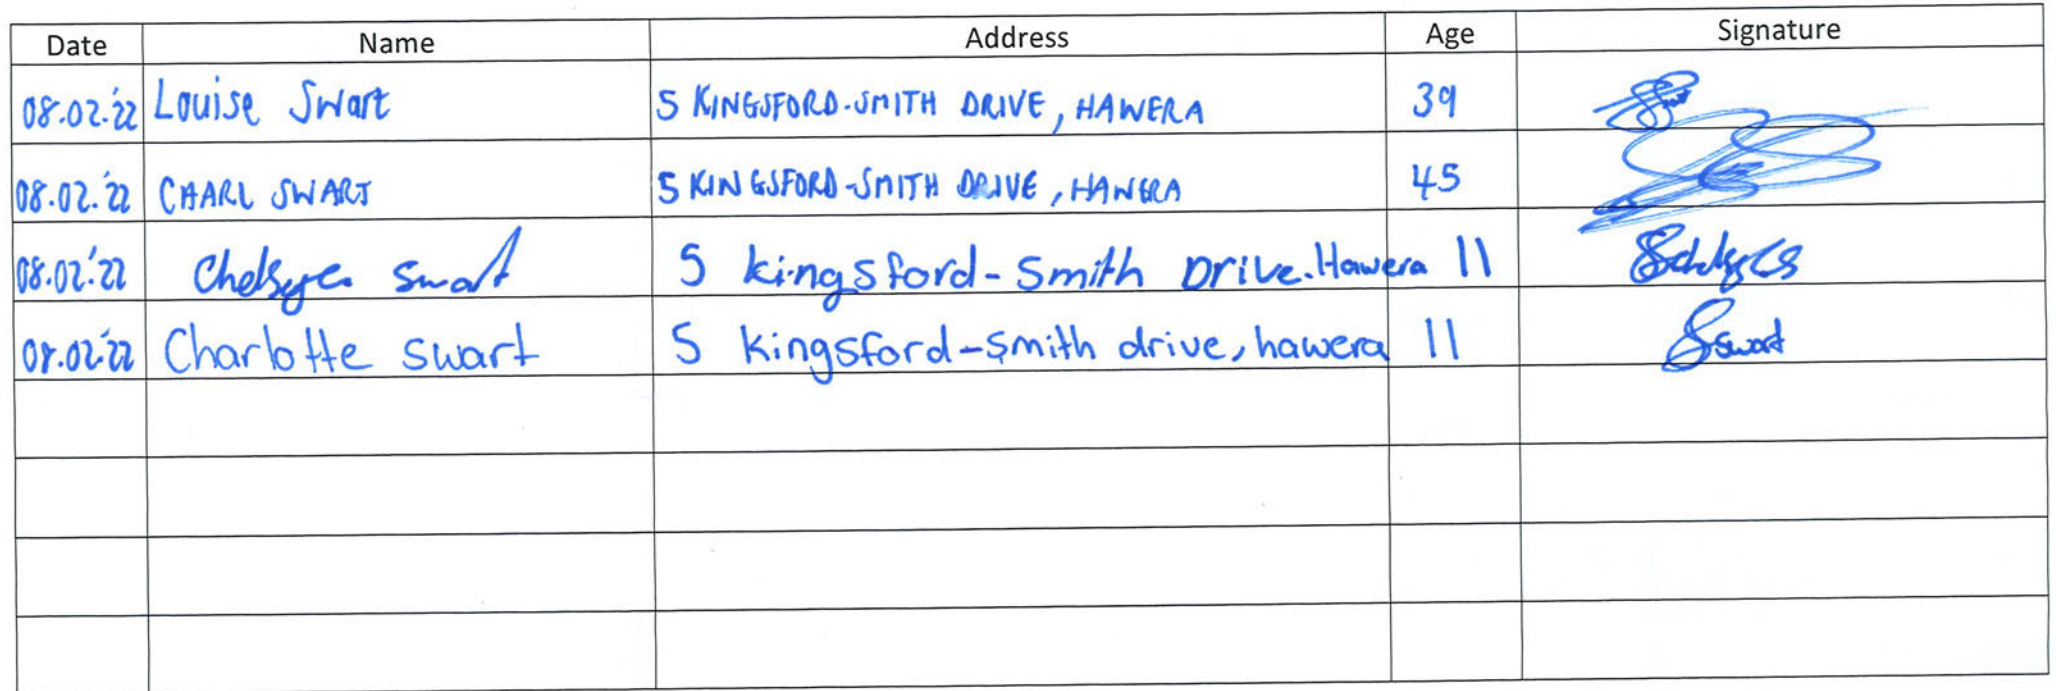 Date Name Address Age Signature
08.02.'22 Louise Swart 5 KINGSFORD-SMITH DRIVE, HAWERA 39
08.02.'22 CHARL SWART 5 KINGSFORD-SMITH DRIVE, HAWERA 45
08.02.'22 Swart 5 kingsford-Smith Drive. Hawera 11
08.02.'22 Charlotte swart 5 kingsford-smith drive, hawera 11 Swart